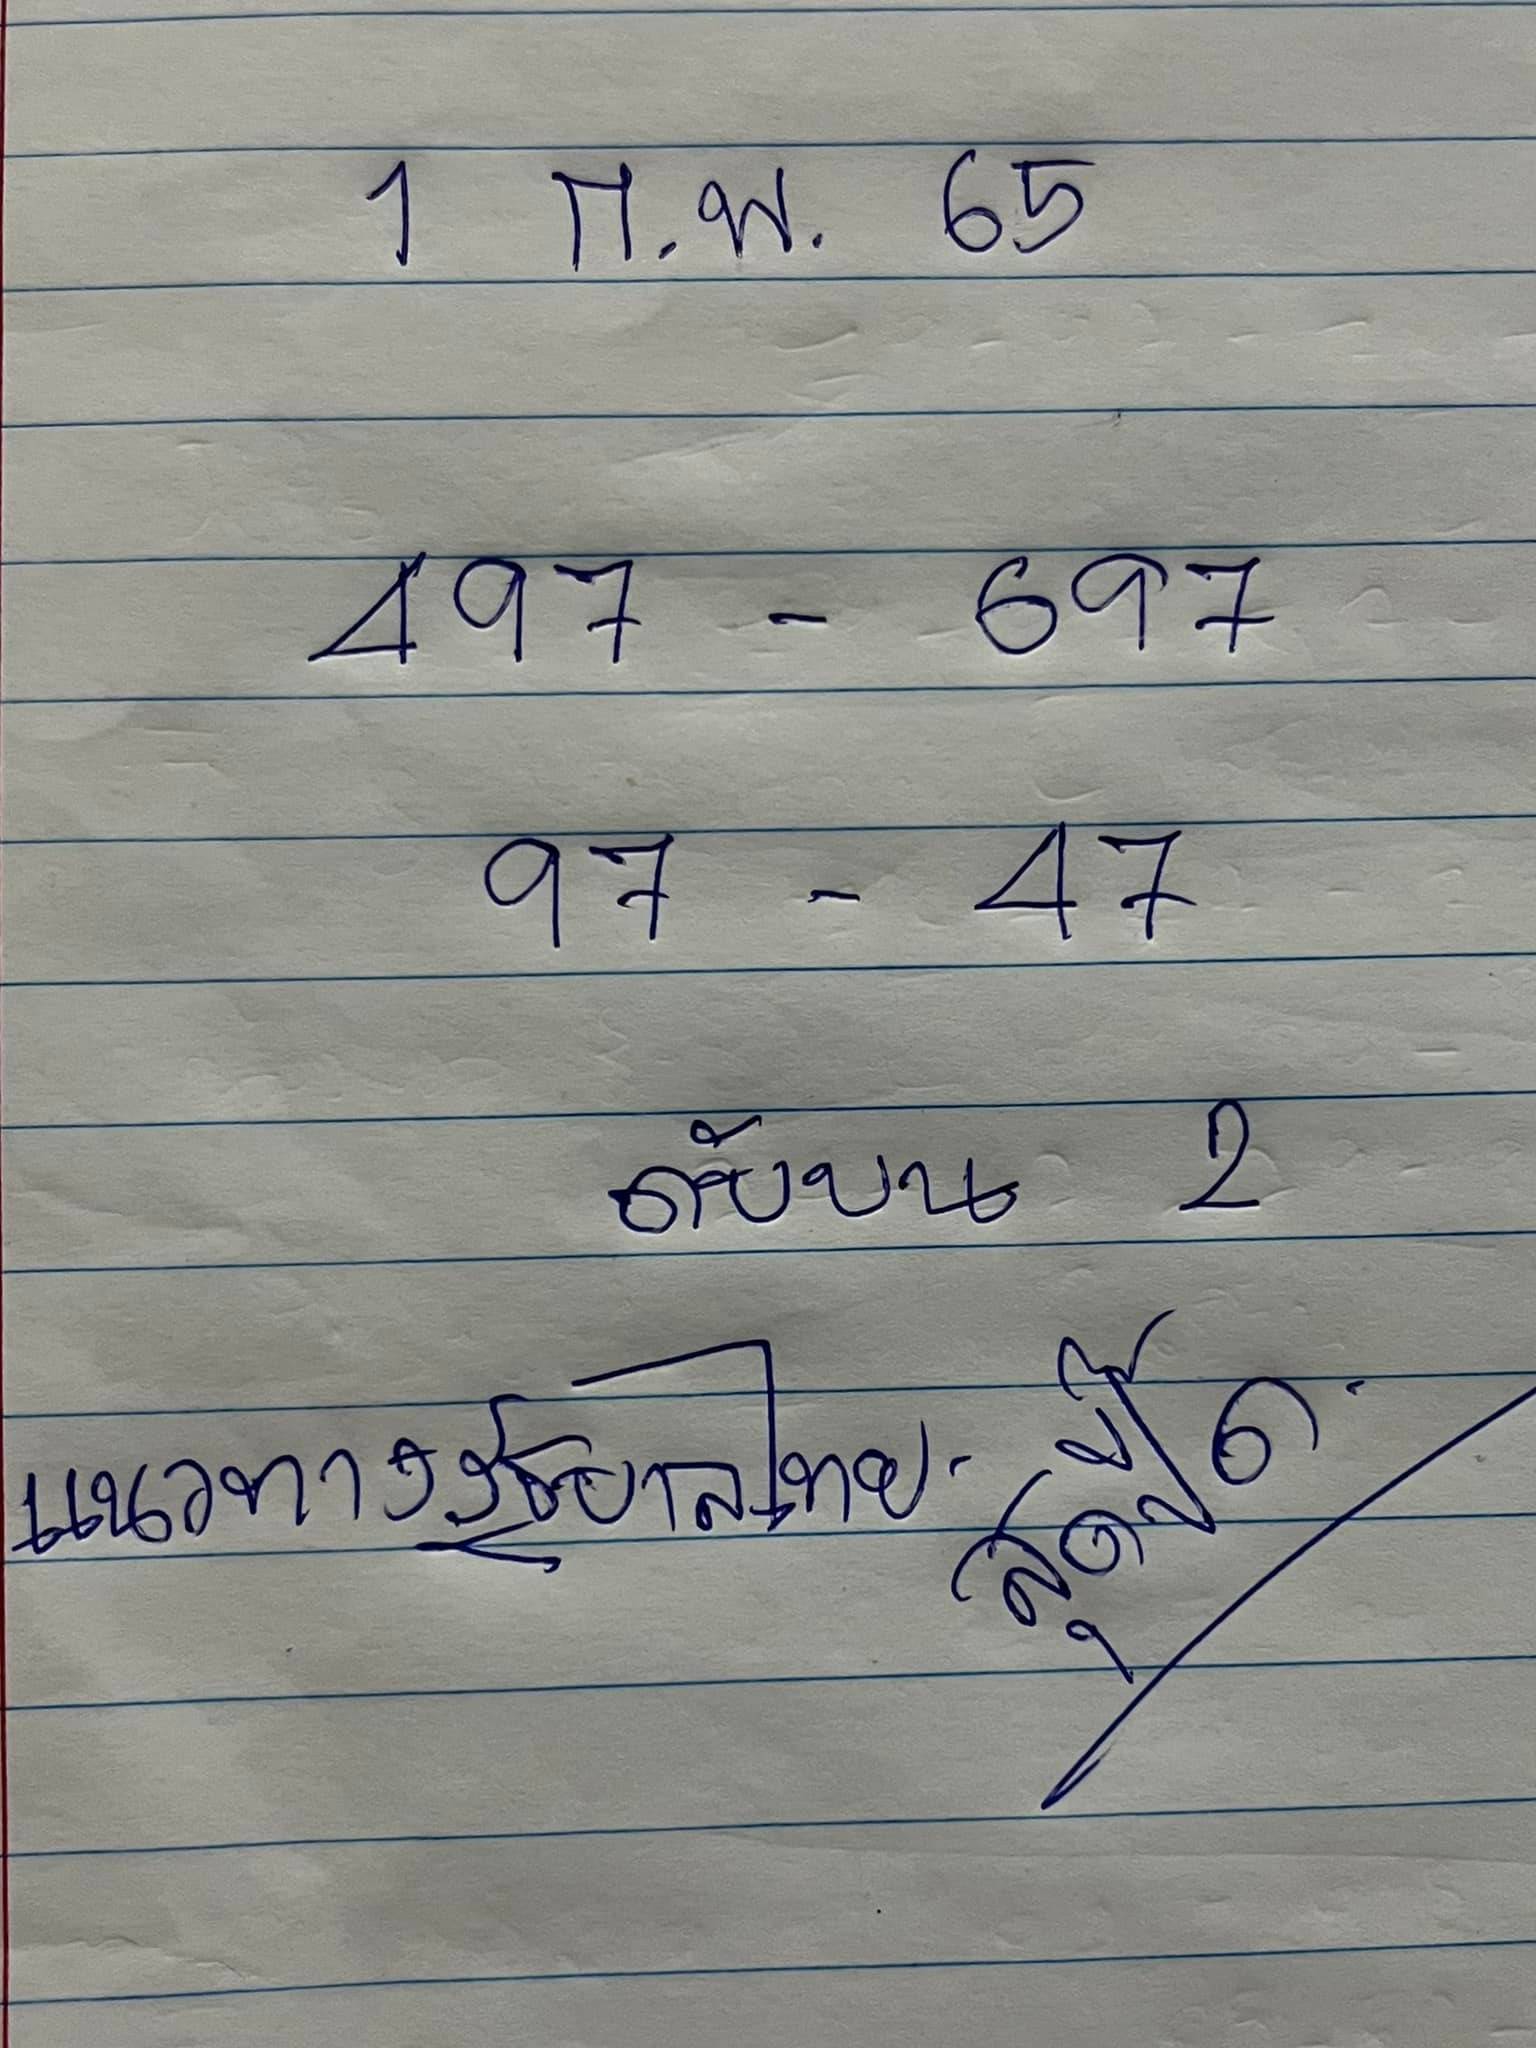 1 ก.พ. 65
497 - 697
97 - 47
ดับบน 2
แนวทางรัฐบาลไทย.